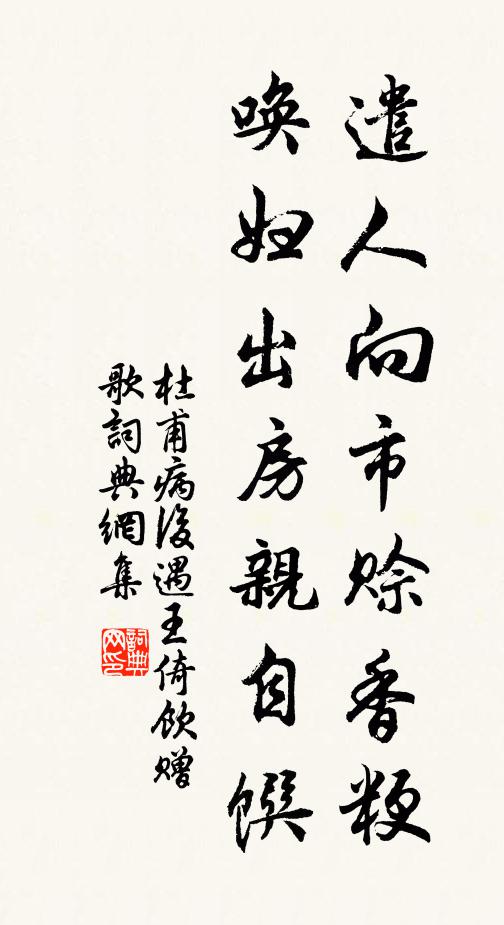 遣人向市賒香粳
喚婦出房親自饌
杜甫病後遇王倚飲贈
歌詞典網集
詞典网印